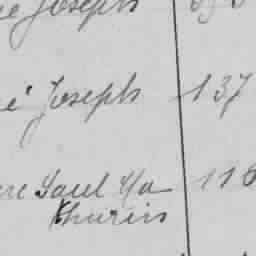 Joseph
é Joseph 137
Paul Ma 116
thurin